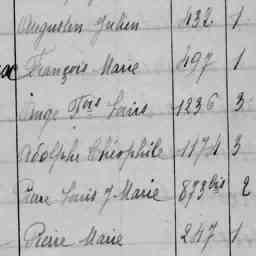 Augustin Julien 432 1
François Marie 497 1
Ange Fois Louis 1236 3
Adolphe Théophile 1174 3
Pierre Louis J Marie 873 bis 2
Pierre Marie 247 1